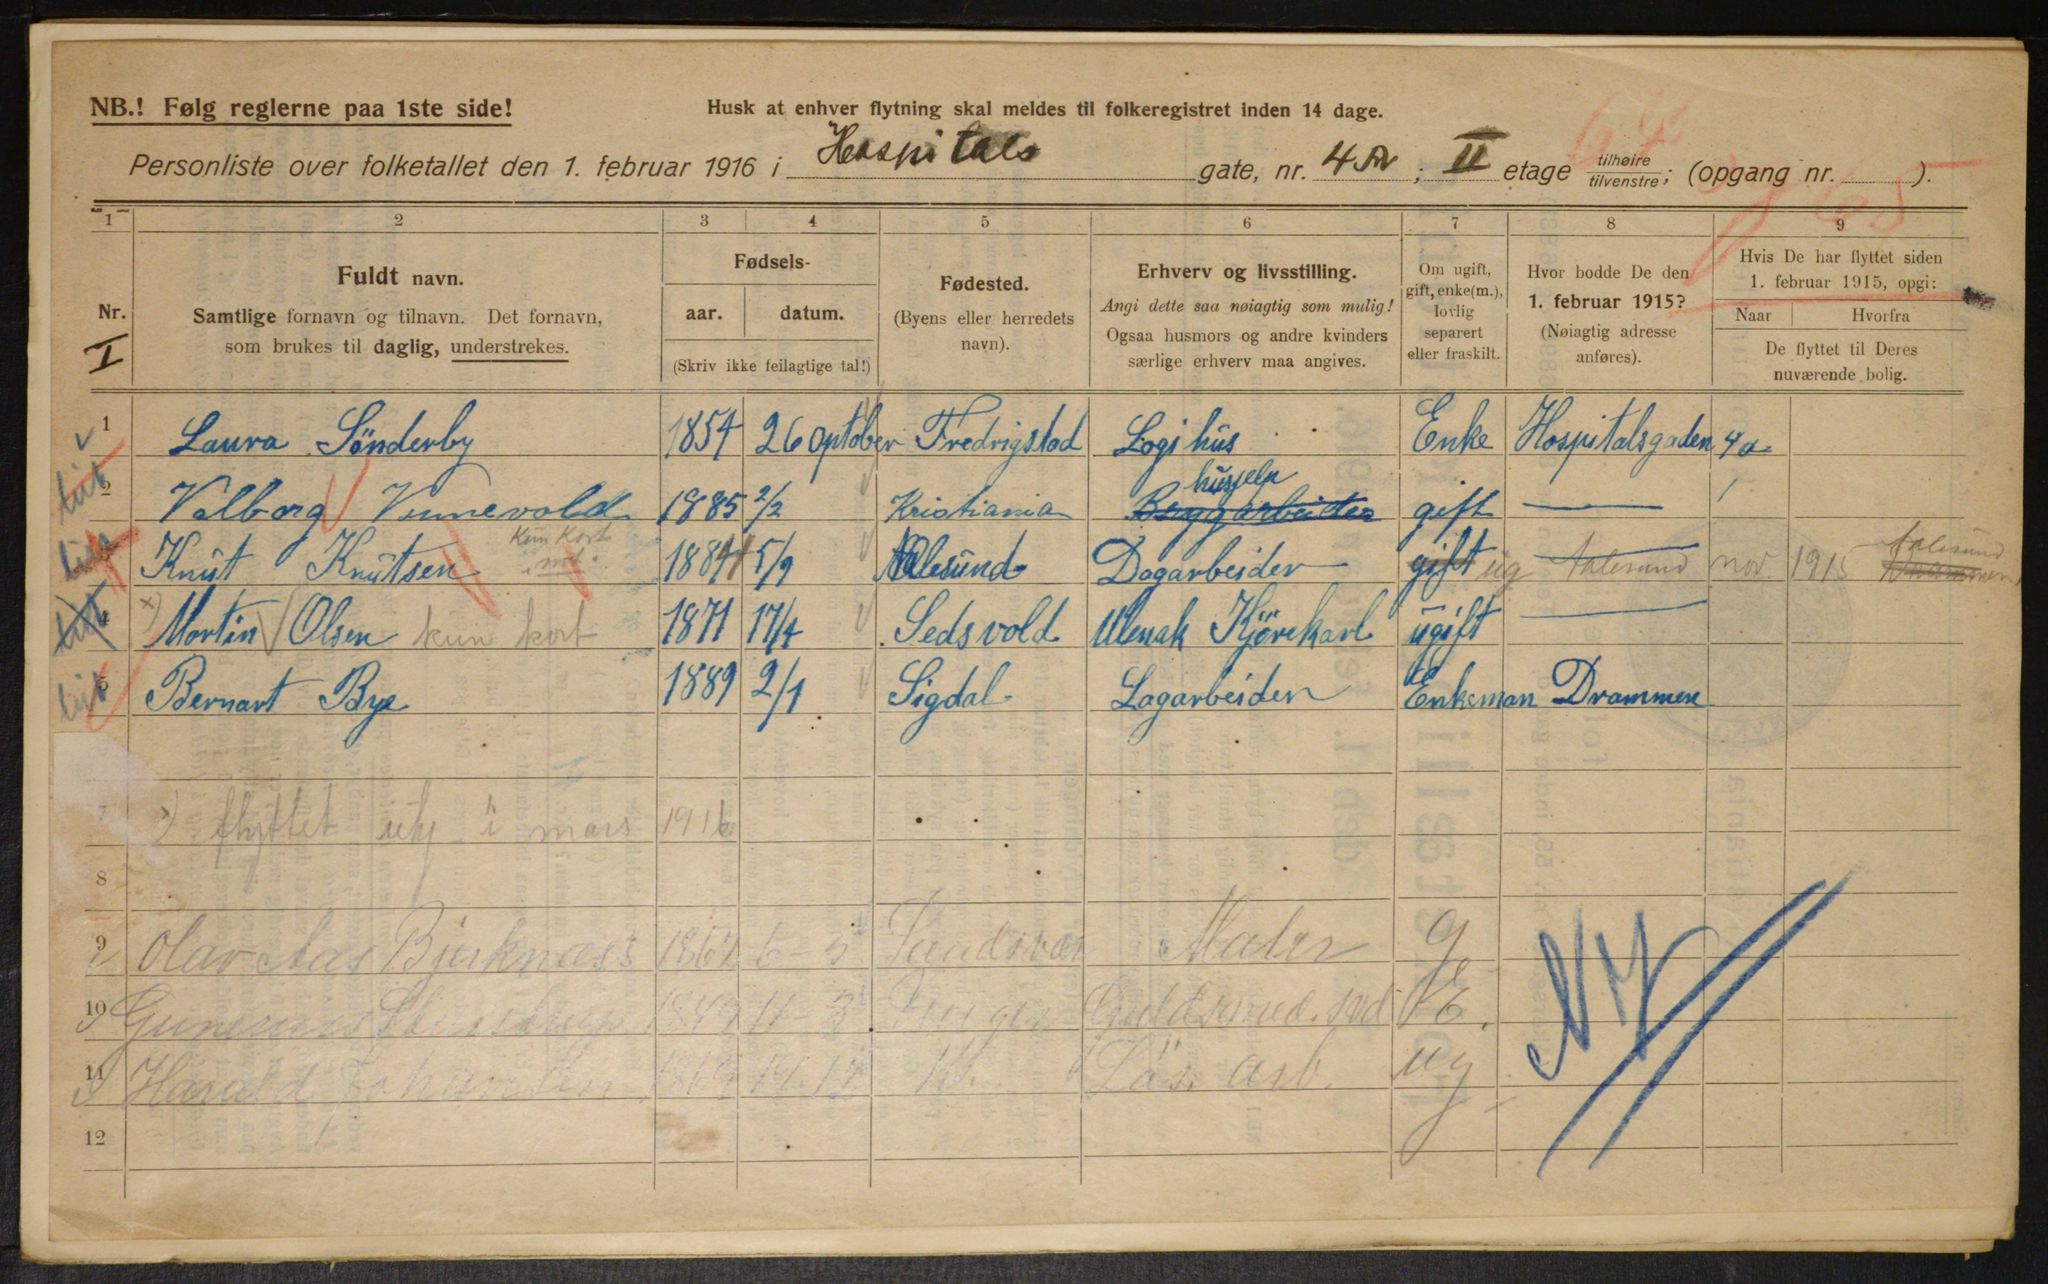 NB.! Følg reglerne paa 1ste side!
Husk at enhver flytning skal meldes til folkeregistret inden 14 dage.
Personliste over folketallet den 1. februar 1916 i Hospitals gate, nr. 4 ; II etage tilhøire tilvenstre; (opgang nr. ).
1 2 3 4 5 6 7 8 9
Nr. I
Fuldt navn.
Samtlige fornavn og tilnavn. Det fornavn,
som brukes til daglig, understrekes.
Fødsels-
aar. datum.
(Skriv ikke feilagtige tal!)
Fødested.
(Byens eller herredets
navn).
Erhverv og livsstilling.
Angi dette saa nøiagtig som mulig!
Ogsaa husmors og andre kvinders
særlige erhverv maa angives.
Om ugift,
gift, enke(m.),
lovlig
separert
eller fraskilt.
Hvor bodde De den
1. februar 1915?
(Nøiagtig adresse
anføres).
Hvis De har flyttet siden
1. februar 1915, opgi:
Naar Hvorfra
De flyttet til Deres
nuværende bolig.
1 Laura Sönderby 1854 26 Optober Fredrigstad Logihus Enke Hospitalsgaden 4a
husjelp
2 Valborg Vunnevold 1885 2/2 Kristiania Bryggarbeider gift —
Kun kort
Knut Knutsen 1884 5/9 Alesund Dagarbeider gift ug Aalesund nov. 1915 Aalesund
4 x) Martin Olsen kun kort 1871 17/4 Sedsvold Ulenak Kjörekarl ugift —
5 Bernart Bye 1889 2/1 Sigdal Lagarbeider Enkeman Drammen
7 x) flyttet i mars 1916
8
9 Olav Aas Bjerknæss 6 - 5 Sandsvær Maler g
10 1849 11 3 E.
11 Harald Johansen 19 12 Kr. Løs arb. ug
12
NY